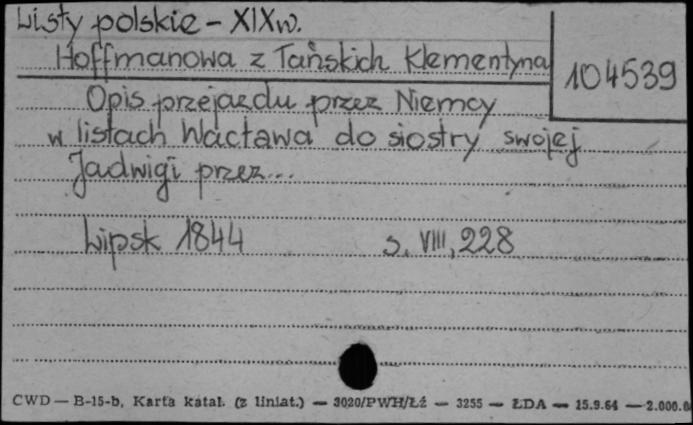 Listy polskie - XIX w.
Hoffmanowa z Tańskich Klementyna
104539
Opis przejazdu przez Niemcy
w listach Wacława do siostry swojej
Jadwigi przez...
Lipsk 1844 s. VIII, 228
CWD — B-15-b, Karta katal. (z liniat.) — 3020/PWH/Łź — 3255 — ŁDA — 15.9.64 — 2.000.0